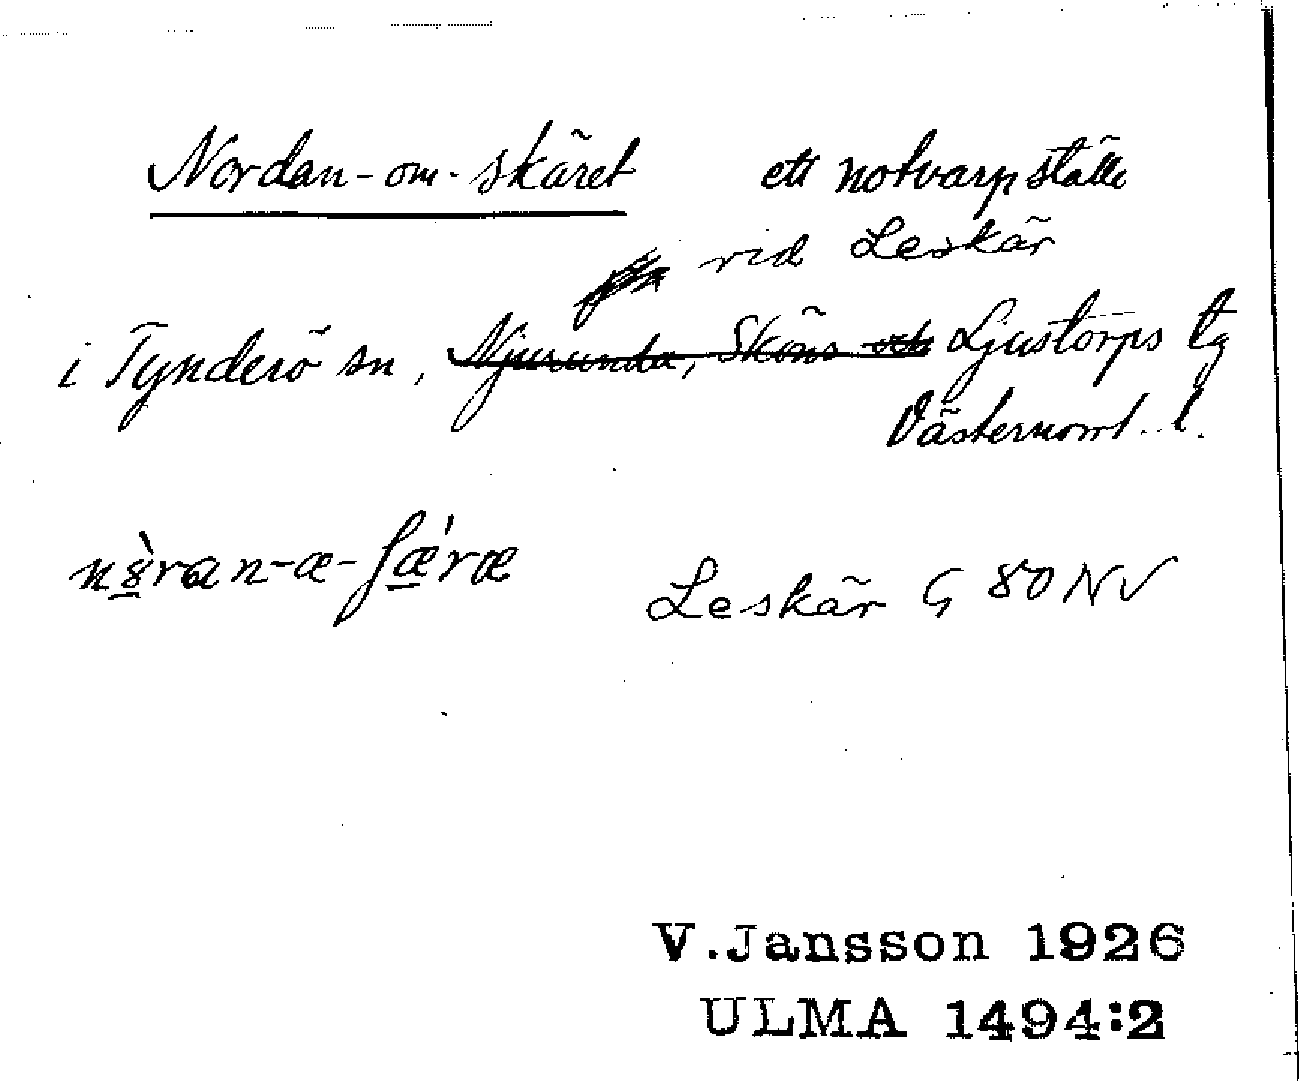 Nordan-om-skäret ett notvarpställe
vid Leskär
i Tynderö sn, Njurunda, Sköns och Ljustorps tg
Västernorrl. l.
nx̀ran-æ-ʃǽræ
Leskär G 80 NV
V.Jansson 1926
ULMA 1494:2